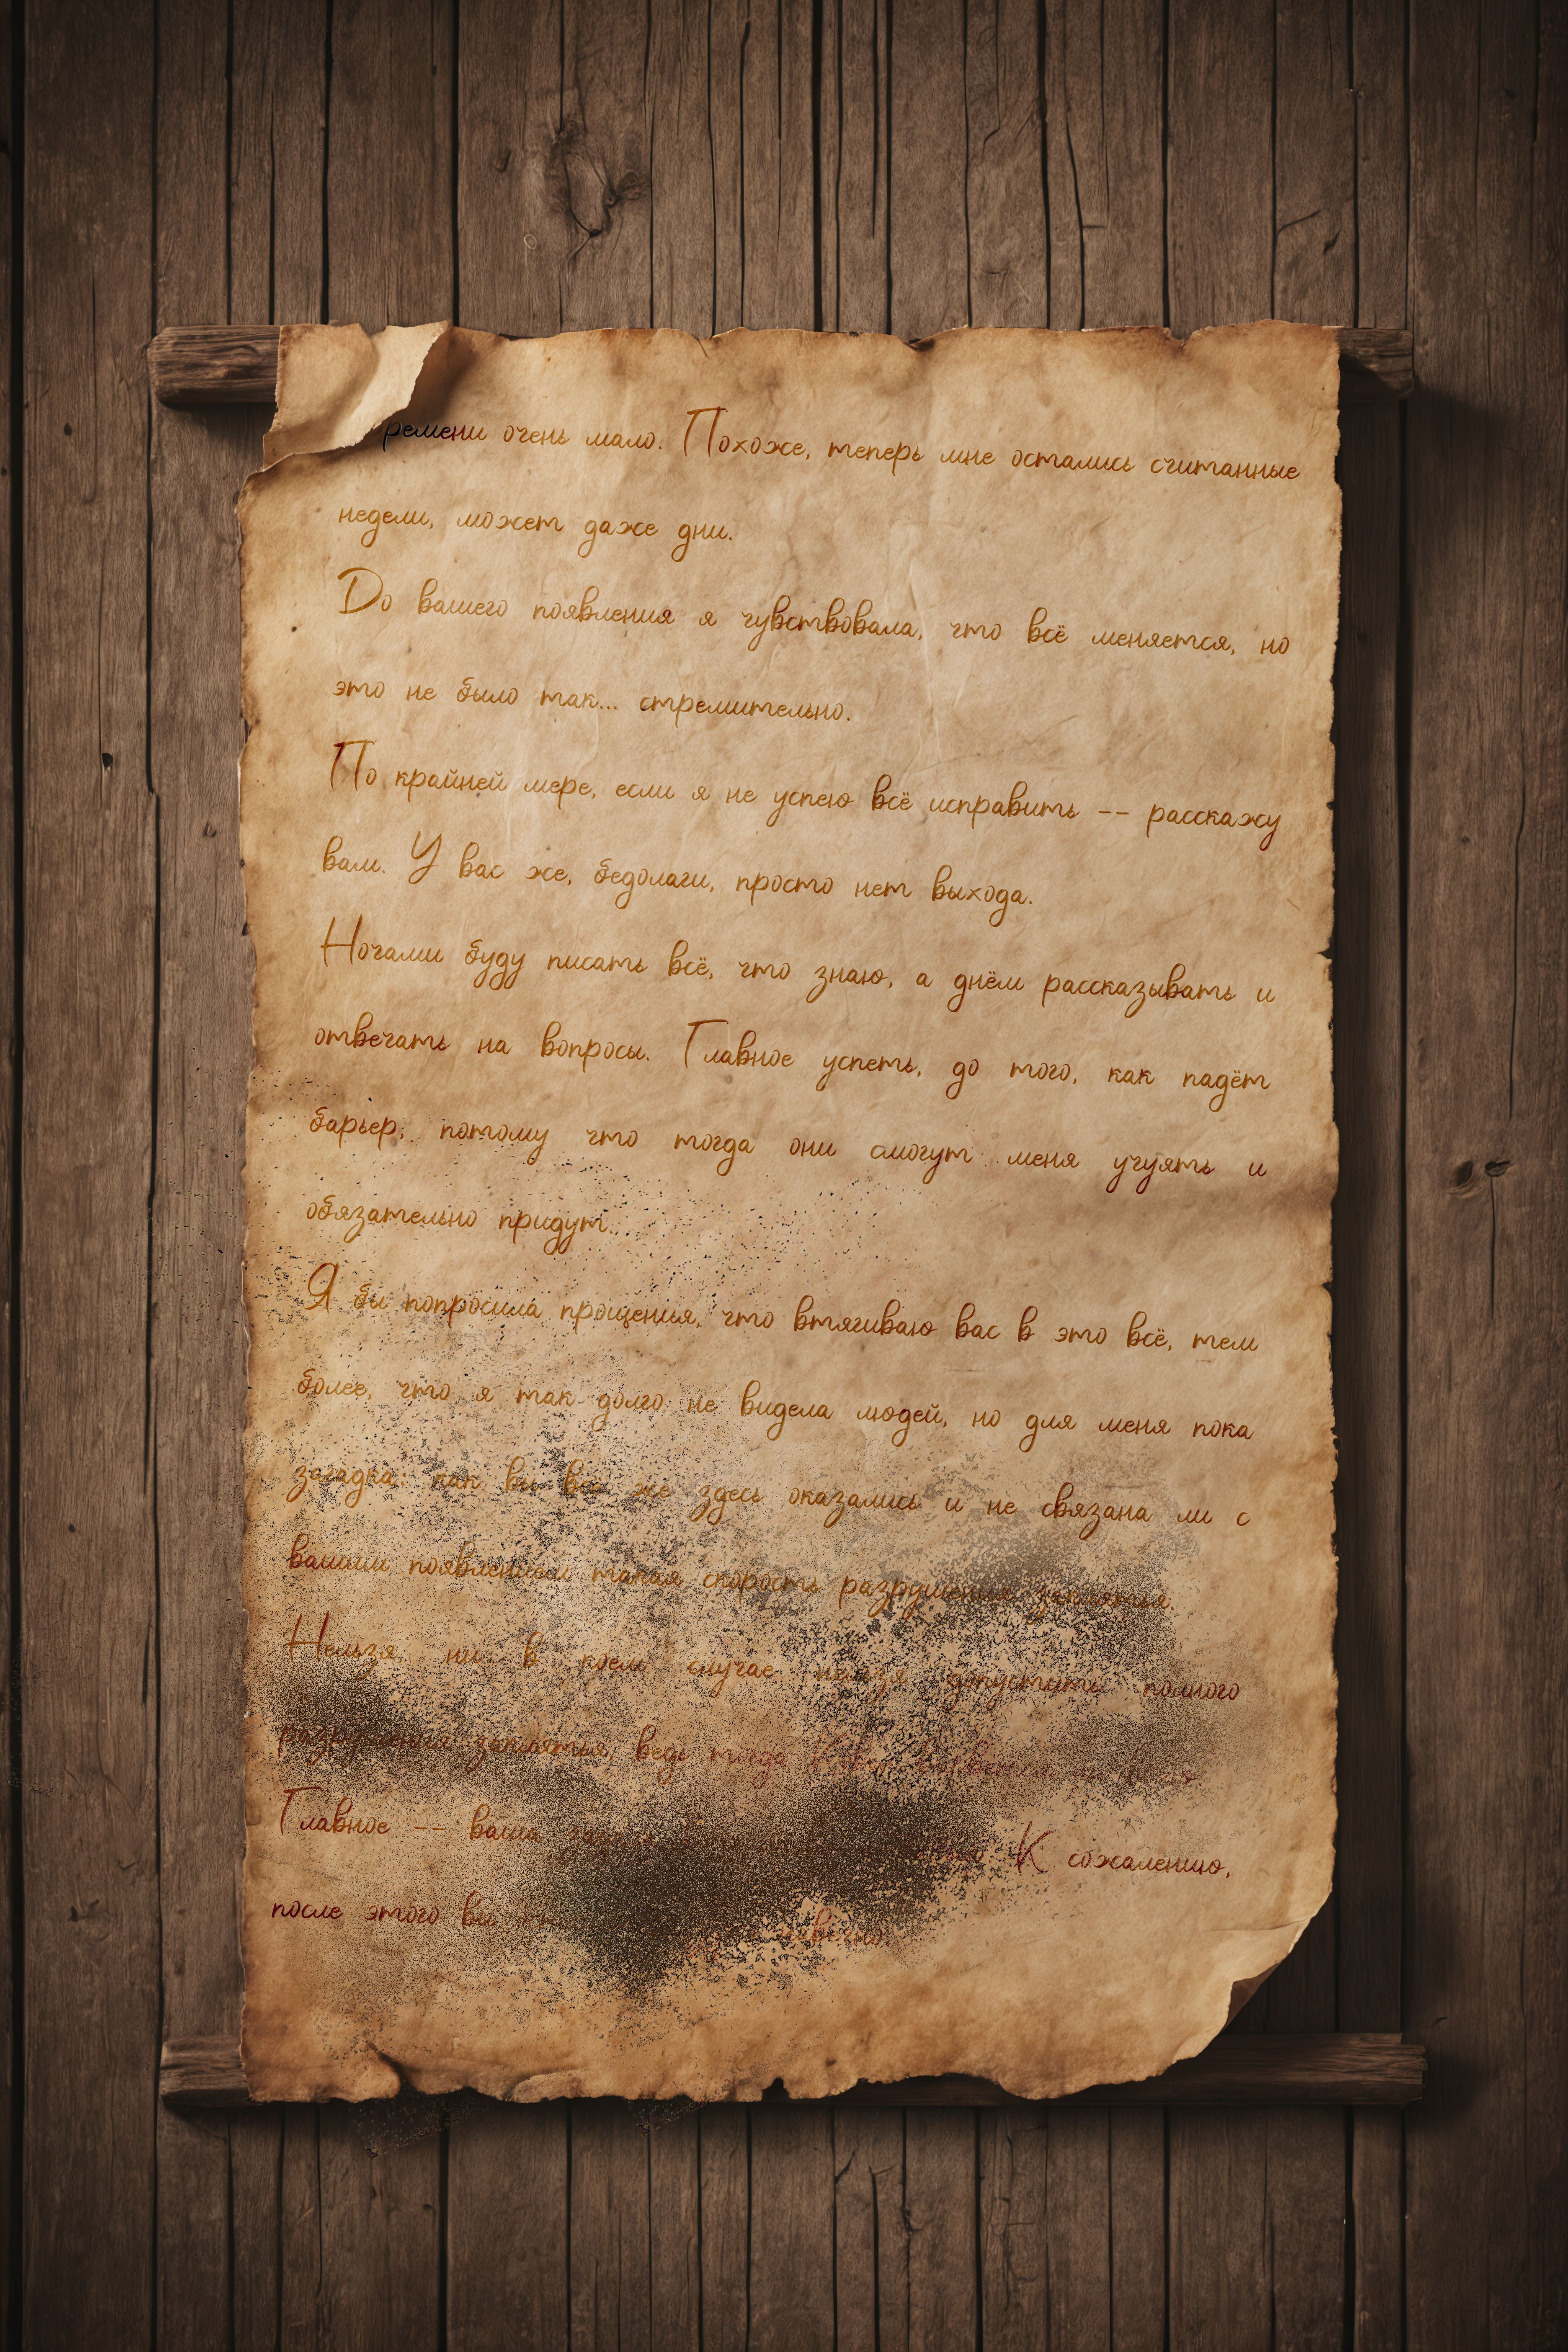 ремени очень мало. Похоже, теперь мне остались считанные
недели, может даже дни.
До вашего появления я чувствовала, что всё меняется, но
это не было так... стремительно.
По крайней мере, если я не успею всё исправить -- расскажу
вам. У вас же, бедолаги, просто нет выхода.
Ночами буду писать всё, что знаю, а днём рассказывать и
отвечать на вопросы. Главное успеть, до того, как падёт
барьер, потому что тогда они смогут меня учуять и
обязательно придут.
Я бы попросила прощения, что втягиваю вас в это всё, тем
более, что я так долго не видела людей, но для меня пока
загадка, как вы все же здесь оказались и не связана ли с
вашим появлением такая скорость разрушения заклятья.
Нельзя, ни в коем случае нельзя допустить полного
разрушения заклятья, ведь тогда вырвется на
Главное -- ваша задача К сожалению,
после этого вы